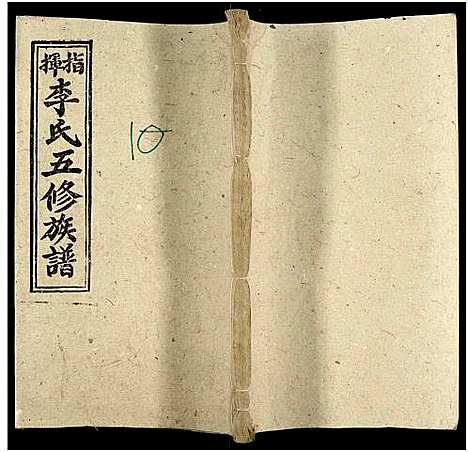 指揮
李氏五修族譜
10